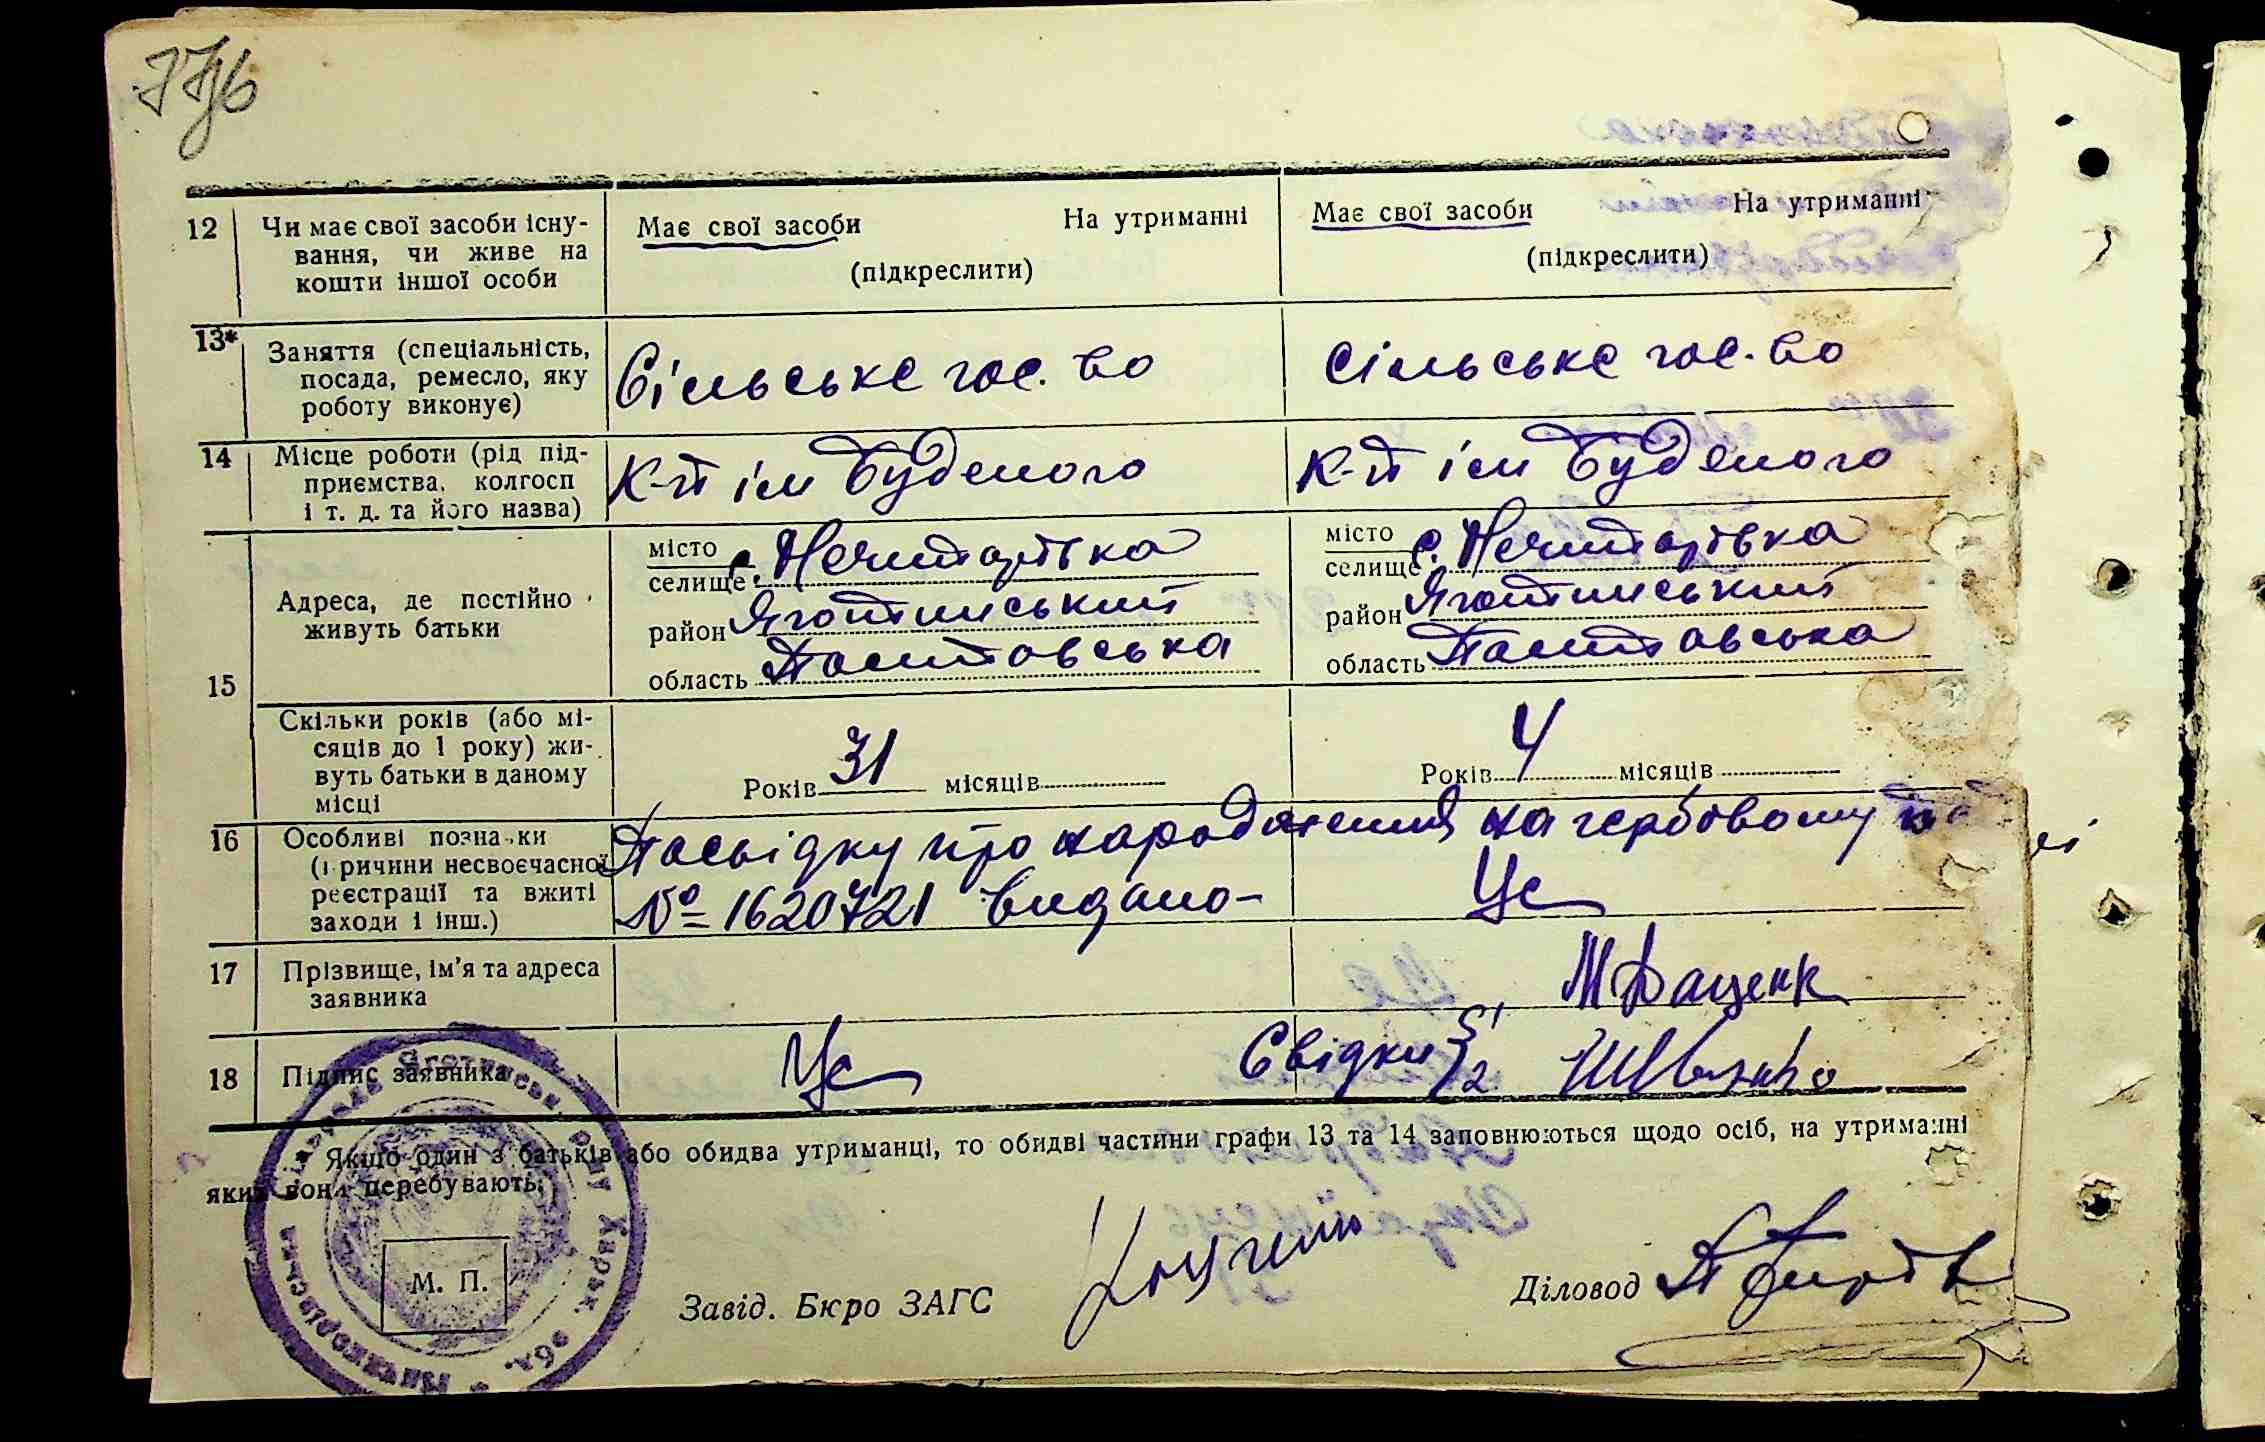 12 Чи має свої засоби існу-
вання, чи живе на
кошти іншої особи
Має свої засоби На утриманні
(підкреслити)
Має свої засоби На утриманні
(підкреслити)
13* Заняття (спеціальність,
посада, ремесло, яку
роботу виконує)
Сільське гос. во
сільське гос. во
14 Місце роботи (рід під-
приємства, колгосп
і т. д. та його назва)
К-п ім Буденого
К-п ім Буденого
15 Адреса, де постійно
живуть батьки
місто
селище с. Нечипорівка
район Яготинський
область Полтовська
місто
селище с. Нечипорівка
район Яготинський
область Полтовська
Скільки років (або мі-
сяців до 1 року) жи-
вуть батьки в даному
місці
Років 31 місяців
Років 4 місяців
16 Особливі позначки
(причини несвоєчасної
реєстрації та вжиті
заходи і інш.)
Посвідку про народження на гербовому
№ 1620721 видано-
17 Прізвище, ім'я та адреса
заявника
18 Підпис заявника
Свідки 1
2
Якщо один з батьків або обидва утриманці, то обидві частини графи 13 та 14 заповнюються щодо осіб, на утриманні
яких вони перебувають.
М. П.
Завід. Бюро ЗАГС
Діловод